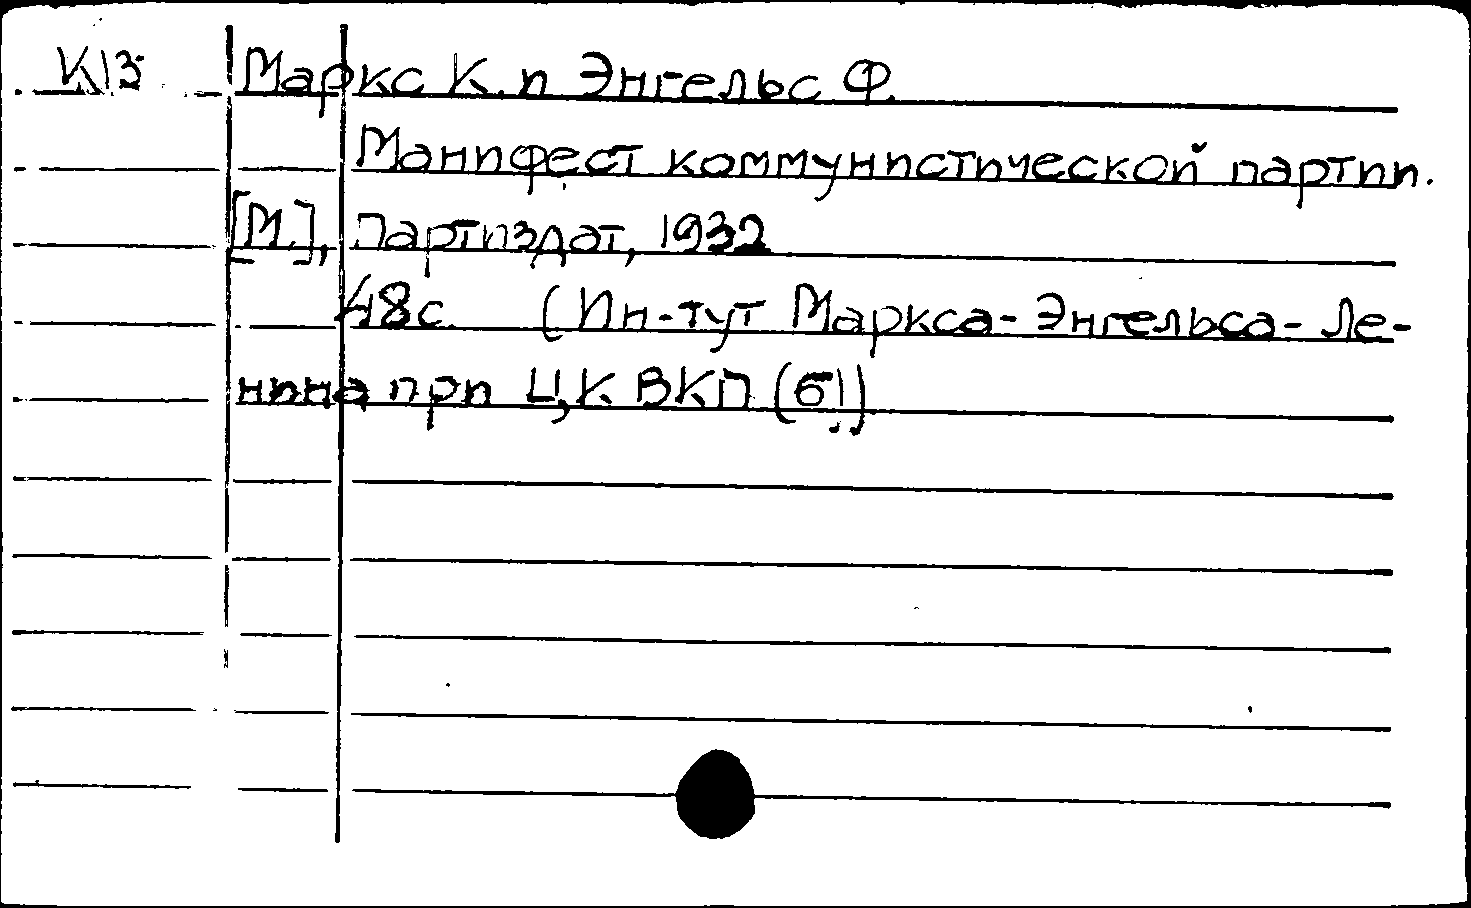 К13 Маркс К. и Энгельс Ф.
Манифест коммунистической партии.
[М.], Партиздат, 1932
48с. (Ин-тут Маркса-Энгельса-Ле-
нина при ЦК ВКП(б))